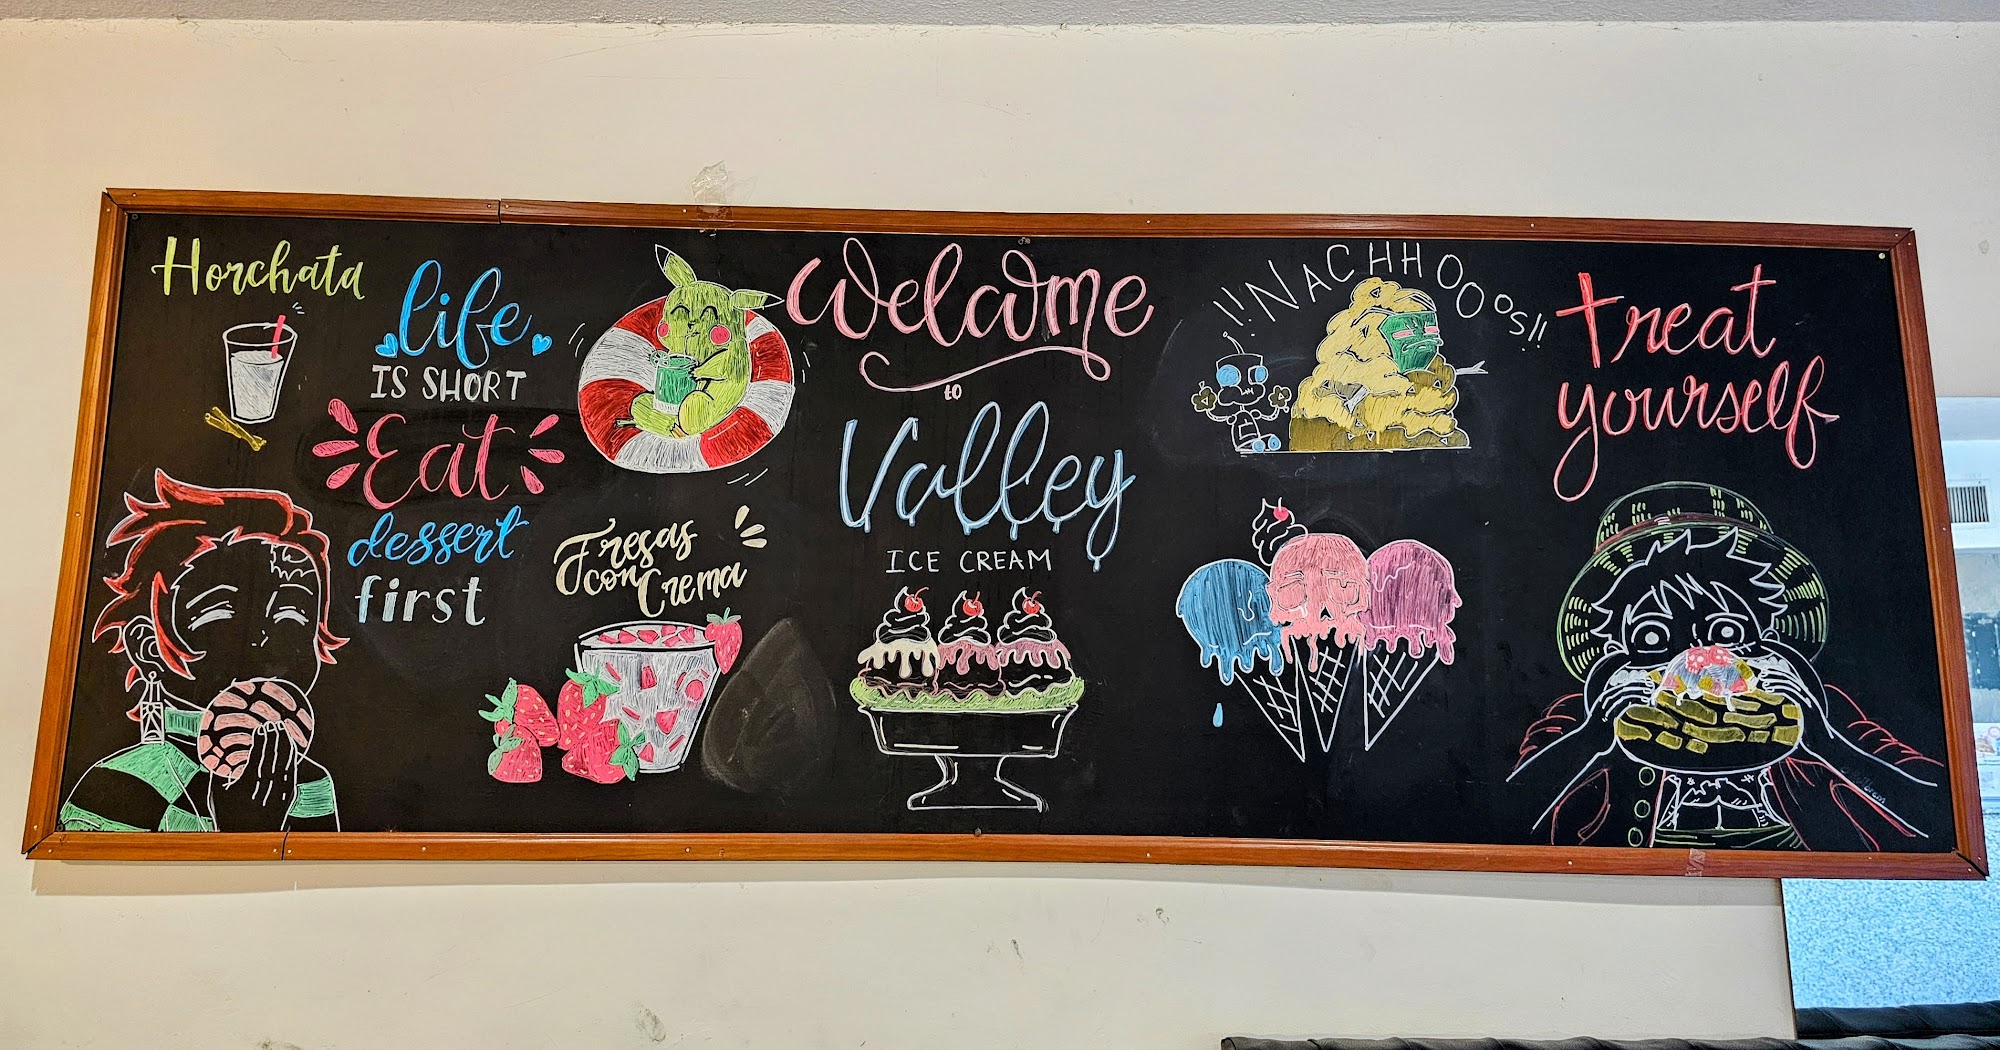 Horchata
life
IS SHORT
Eat
dessert
first
Fresas
con
Crema
Welcome
to
Valley
ICE CREAM
!!NACHHOOOS!!
treat
yourself